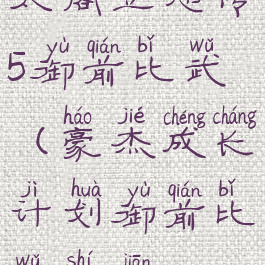 yù qián bǐ wǔ
5御前比武
háo jié chéng cháng
(豪杰成长
jì huà yù qián bǐ
计划御前比
wǔ shí jiān